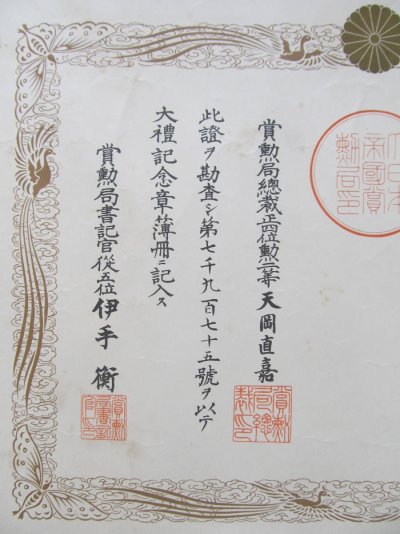 賞勲局總裁正四位勲二等天岡直嘉
此證ヲ勘査シ第七千九百七十五號ヲ以テ
大禮記念章簿冊ニ記入ス
賞勲局書記官從五位伊手衡
賞勲局總裁印
賞勲局書記官印